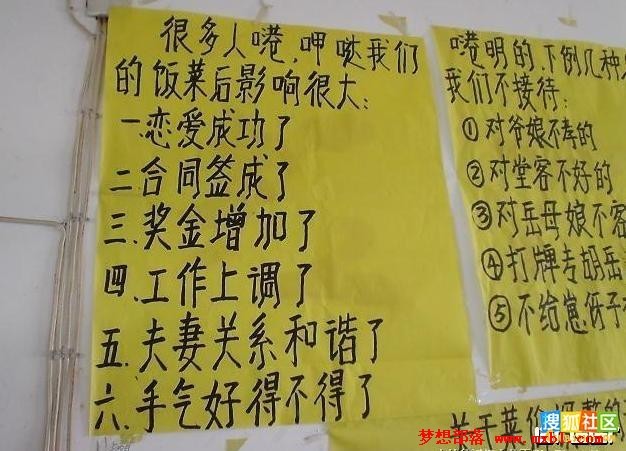 很多人,呷哒我们
的饭菜后影响很大:
一.恋爱成功了
二.合同签成了
三.奖金增加了
四.工作上调了
五.夫妻关系和谐了
六.手气好得不得了
明的,下例几种
我们不接待:
①对爷娘不孝的
②对堂客不好的
③对岳母娘不客
④打牌专胡岳
⑤不给崽伢子
关于菜价调整的
搜狐社区
梦想部落